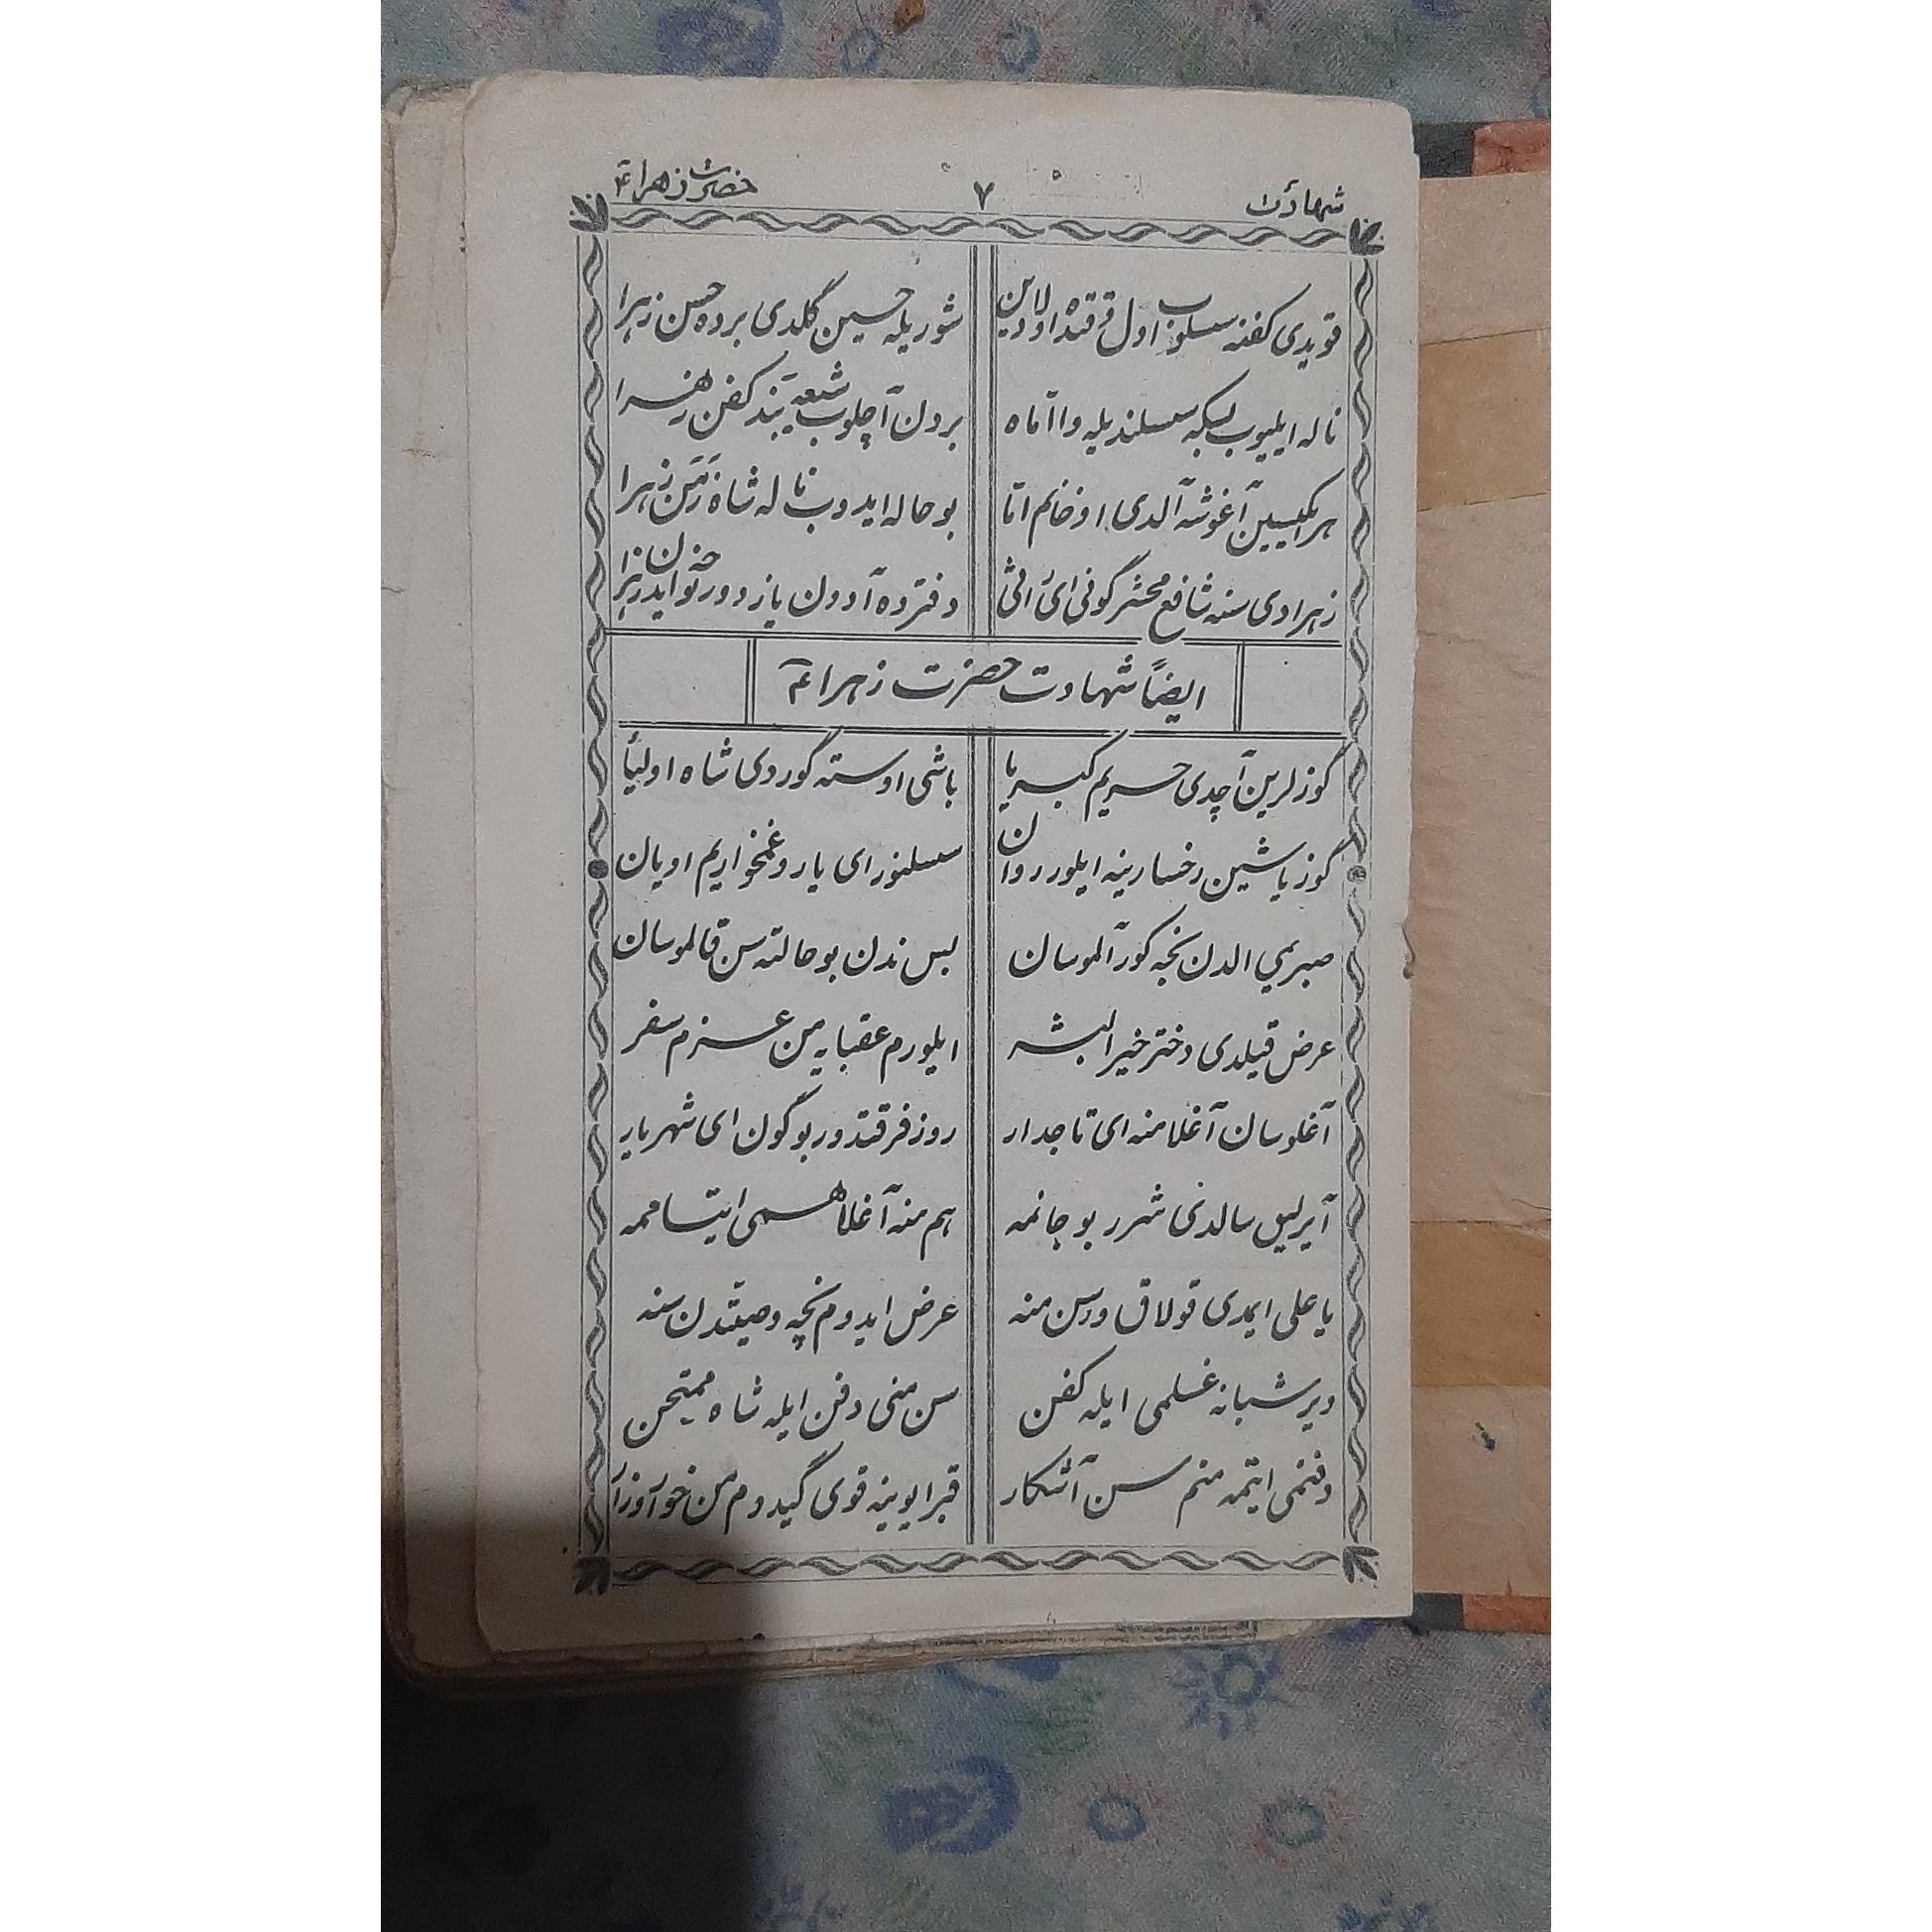 شهادت ۷ حضرت زهرا ع
قویدی کفنه سسلوب اول قرقتده اولادین شوریله حسین گلدی برده حسن زهرا
ناله ایلیوب بسکه سسلندیله وا آماه بردن آچلوب شیعه بند کفن زهرا
هر ایکیسین آغوشه آلدی او خانم اما بو حاله ایدوب ناله شاه زمن زهرا
زهرا دی سنه شافع محشر گونی ای دفترده آدون یازدور ایدر زهرا
ایضاً شهادت حضرت زهرا ع
گوزلرین آچدی حریم کبریا باشی اوسته گوردی شاه اولیا
گوز یاشین رخسارینه ایلور روان سسلنور ای یار و غمخواریم اویان
صبریمی الدن نجه گور آلموسان بس ندن بو حالته سن قالموسان
عرض قیلدی دختر خیر البشر ایلورم عقبایه من عزم سفر
آغلوسان آغلا منه ای تاجدار روز فرقتدور بو گون ای شهریار
آیرلیق سالدی شرر بو جانمه هم منه آغلا همی ایتامممه
یا علی ایمدی قولاق ویر سن منه عرض ایدوم نچه وصیتدن سنه
ویر شبانه غسلمی ایله کفن سن منی دفن ایله شاه ممتحن
دفنمی ایتمه منم سن آشکار قبر ایوینه قوی گیدوم من خوار و زار